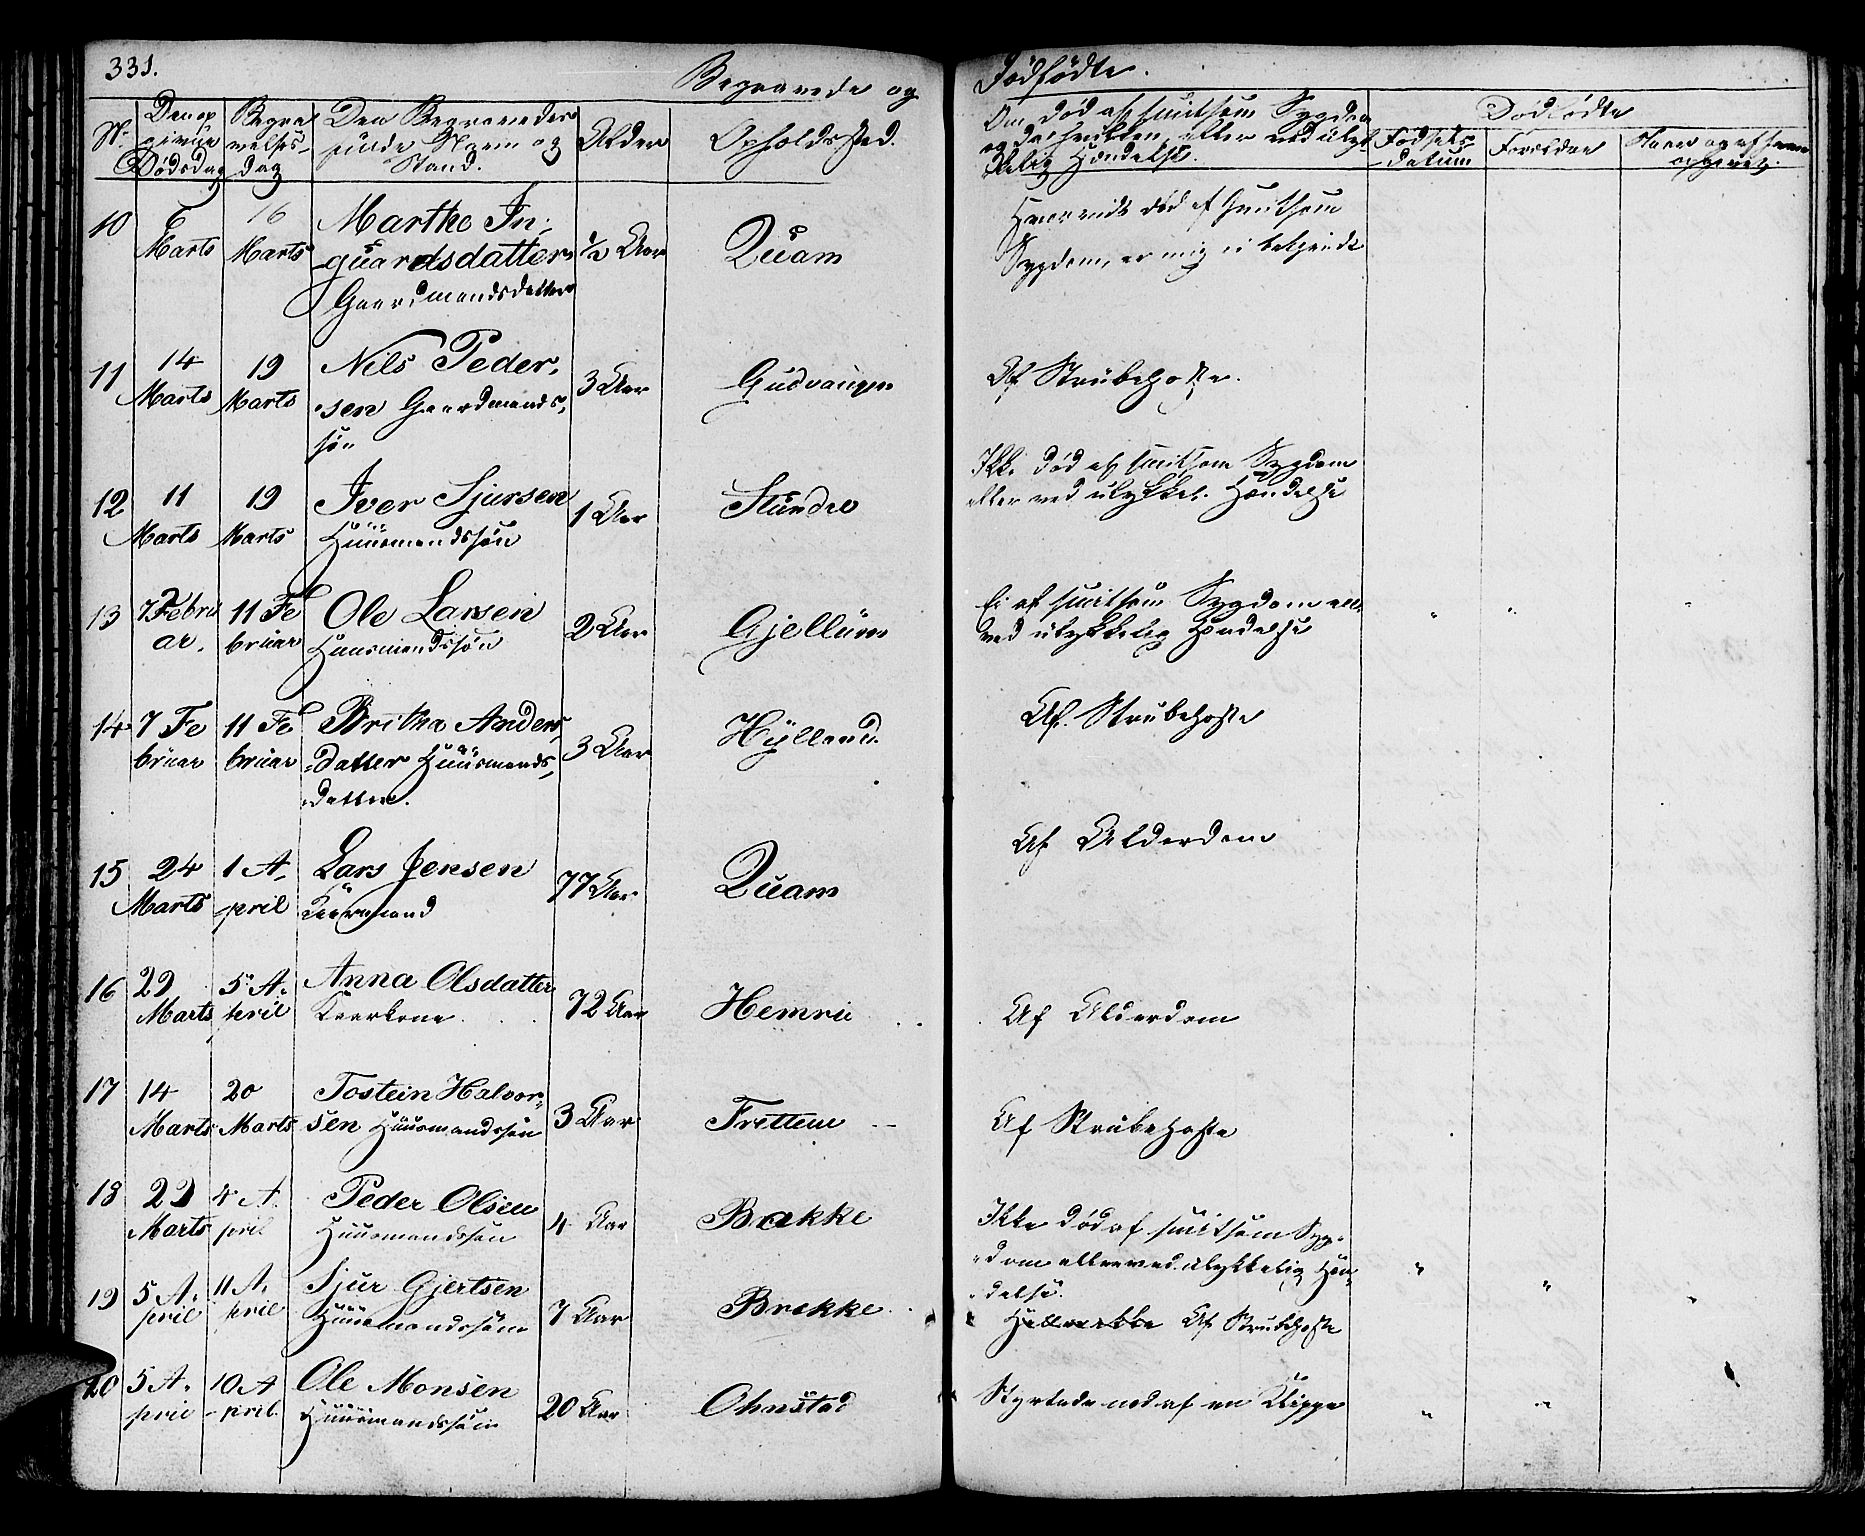 331.
Begravede og Dødfødte.
No. | Den opgivne Dødsdag | Begravelsesdag | Den Begravedes fulde Navn og Stand. | Alder | Opholdssted. | Om Død af smitsom Sygdom og deslike eller ved ulykkelig Hændelse. | Dødfødte | Fødsels datum | Forældre
10 | 6 Marts | 16 Marts | Marthe Inguardsdatter Gaardmandsdatter | ½ Aar | Quam | Hvorvidt død af smitsom Sygdom, er mig ei bekjendt
11 | 14 Marts | 19 Marts | Nils Pedersen Gaardmandssøn | 3 Aar | Gudvangen | Af Strubehoste.
12 | 11 Marts | 19 Marts | Iver Sjursen Huusmandssøn | 1 Aar | Stundre | Ikke død af smitsom Sygdom eller ved ulykkel. Hændelse
13 | Februar. | 11 Februar | Ole Larsen Huusmandssøn | 2 Aar | Gjellum | Ei af smitsom Sygdom ell. ved ulykkelig Hændelse | " | " | "
14 | 7 Februar | 11 Februar | Britha Andersdatter Huusmandsdatter. | 3 Aar | Hylland. | Af. Strubehoste
15 | 24 Marts | 1 April | Lars Jensen Kaarmand | 77 Aar | Quam | Af Alderdom
16 | 22 Marts | 5 April | Anna Olsdatter Kaarkone | 72 Aar | Hemrii | Af Alderdom
17 | 14 Marts | 20 Marts | Tostein Halvorsen Huusmandssøn | 3 Aar | Frettem | Af Strubehoste
18 | 22 Marts | 4 April | Peder Olsen Huusmandssøn | 4 Aar | Bække | Ikke død af smitsom Sygdom eller ved ulykkelig Hændelse. | " | " | "
19 | 5 April | 11 April | Sjur Gjertsen Huusmandssøn | 7 Aar | Brække | Af Strubehoste
20 | 5 April | 10 April. | Ole Monsen Huusmandssøn | 20 Aar | Ohnstad | Styrtede ned af en Klippe | " | "